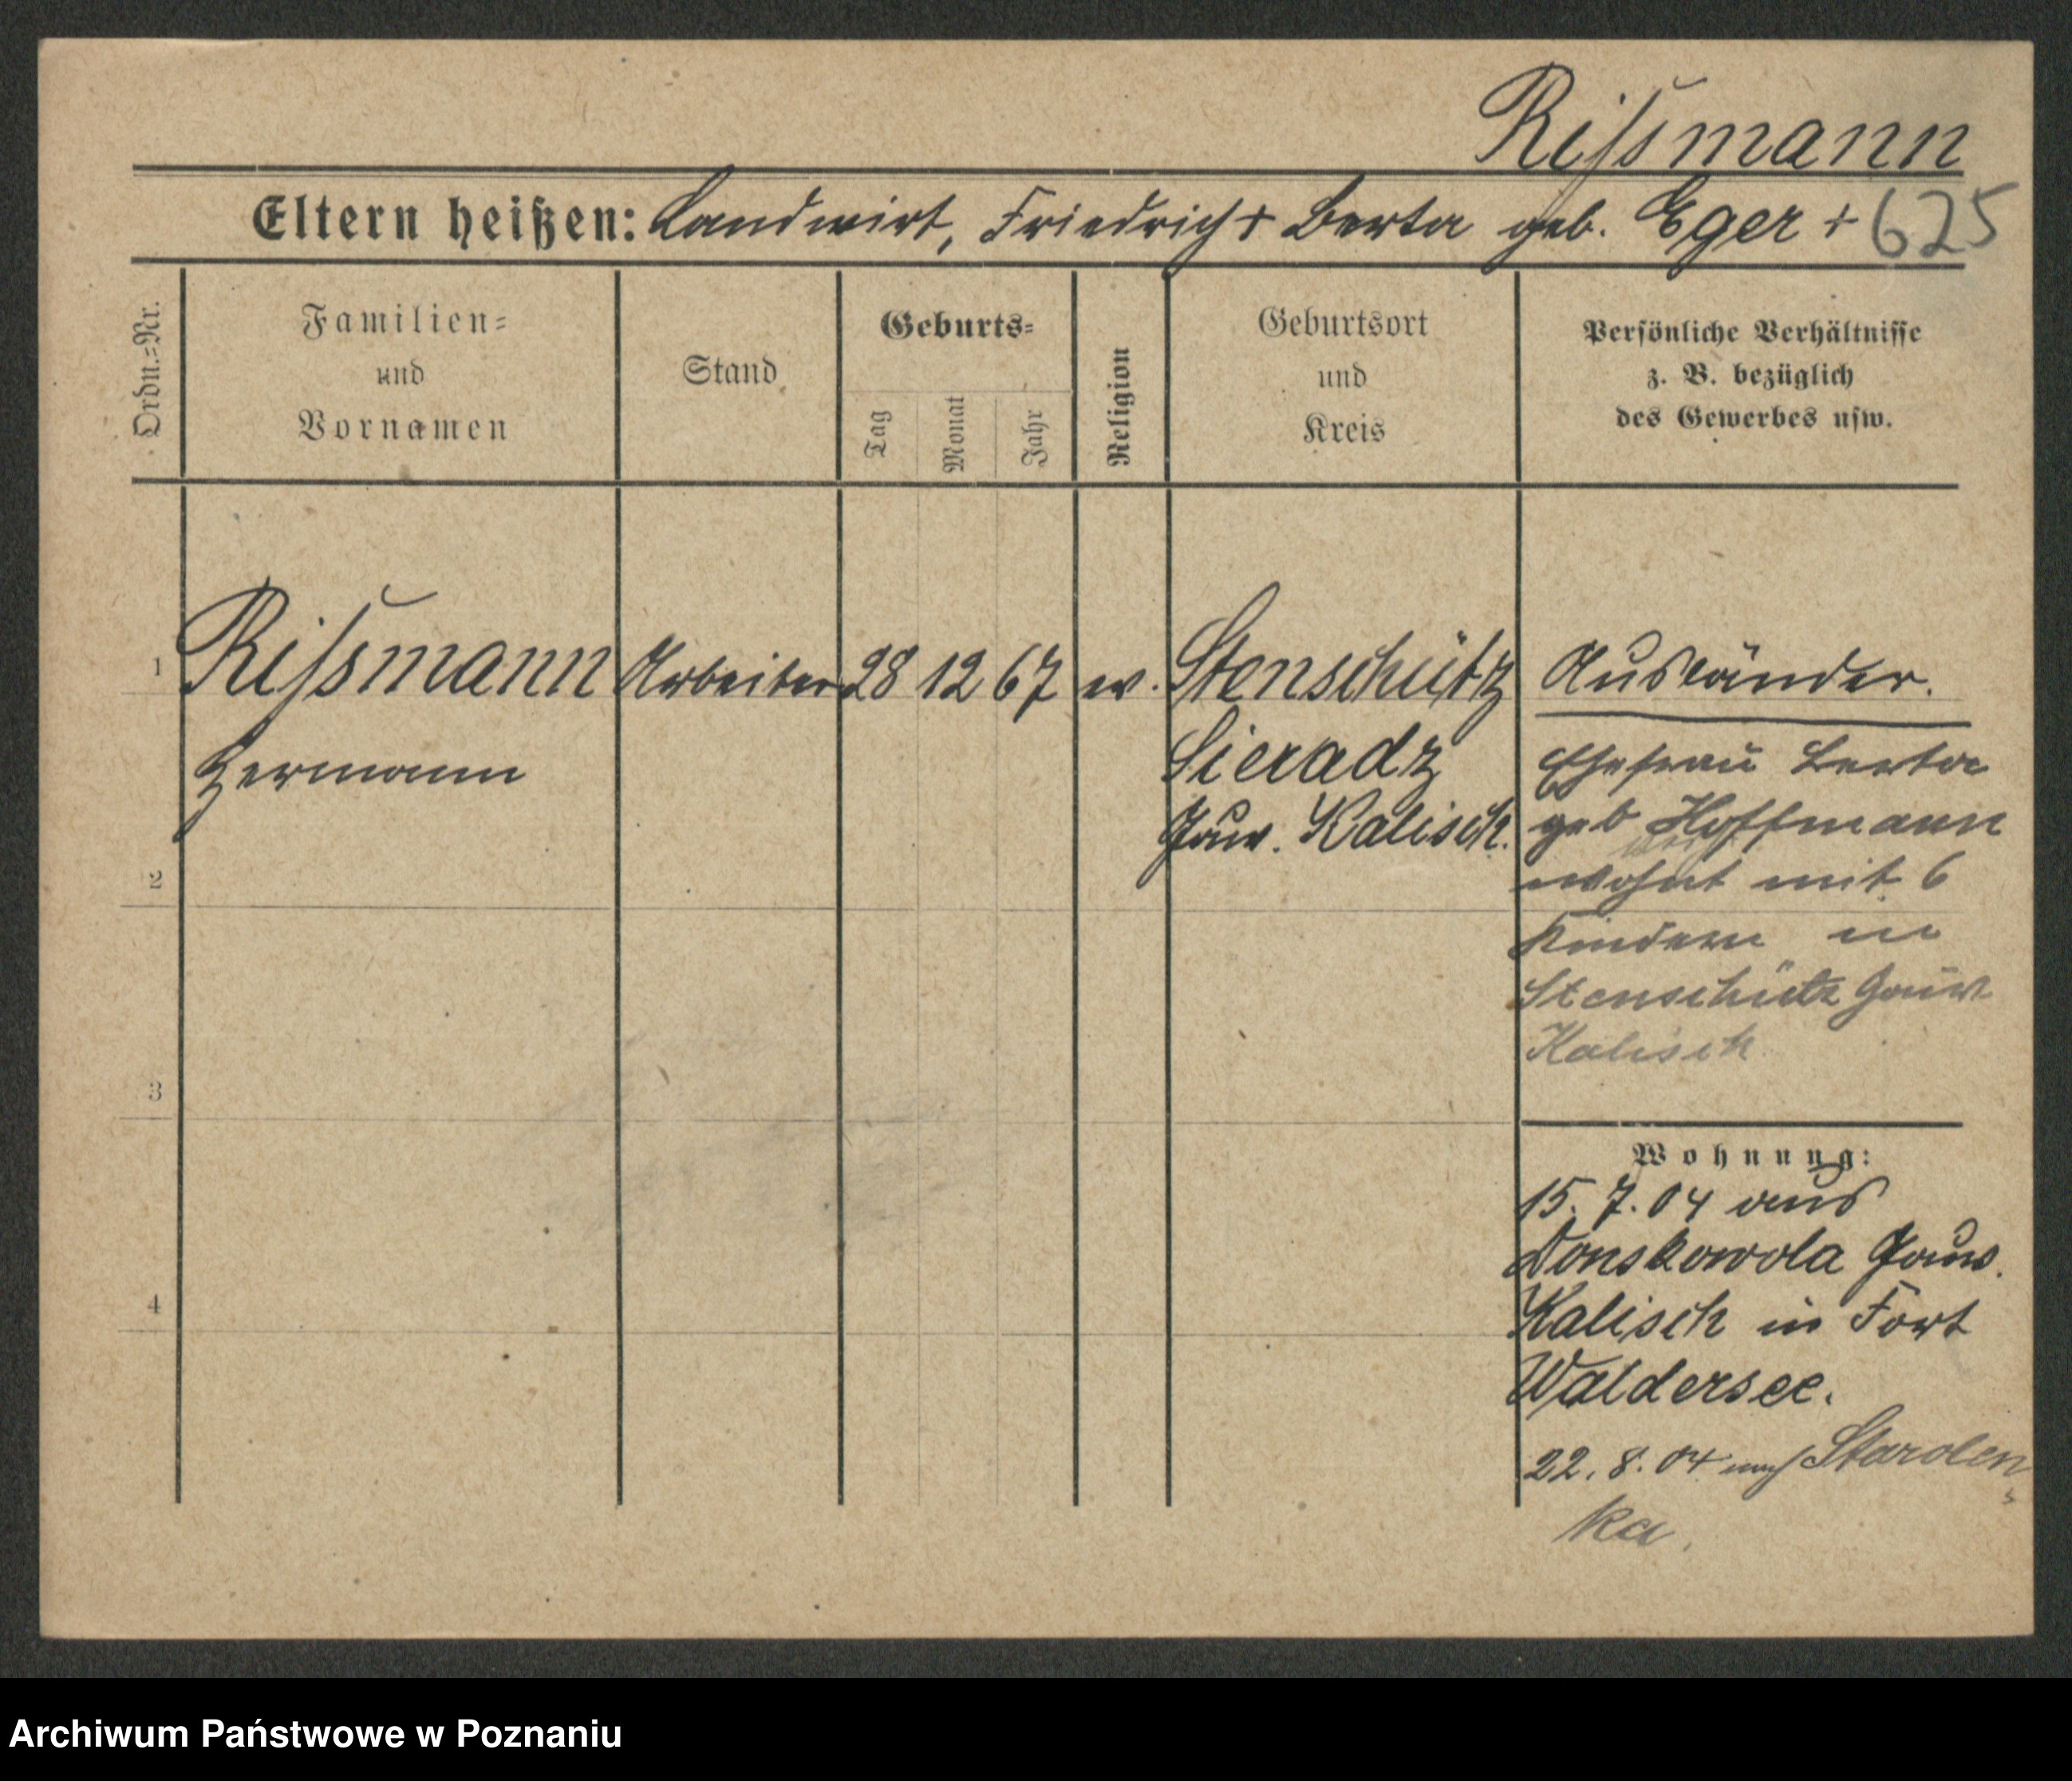 Rissmann
Eltern heißen: Landwirt, Friedrich + Berta geb. Eger +
625
Ordn.=Nr.
Familien=
und
Vornamen
Stand
Geburts=
Tag
Monat
Jahr
Religion
Geburtsort
und
Kreis
Persönliche Verhältnisse
z. B. bezüglich
des Gewerbes usw.
1 Rissmann Arbeiter 28 12 67 ev. Stenschütz Ausländer.
Hermann
Sieradz
Gouv. Kalisch.
Ehefrau Berta
geb Hoffmann
wohnt mit 6
Kindern in
Stenschütz Gouv
Kalisch
2
3
4
Wohnung:
15. 7. 04 aus
Donskowola Gouv.
Kalisch in Fort
Waldersee.
22. 8. 04 nach Starolen
ka.
Archiwum Państwowe w Poznaniu